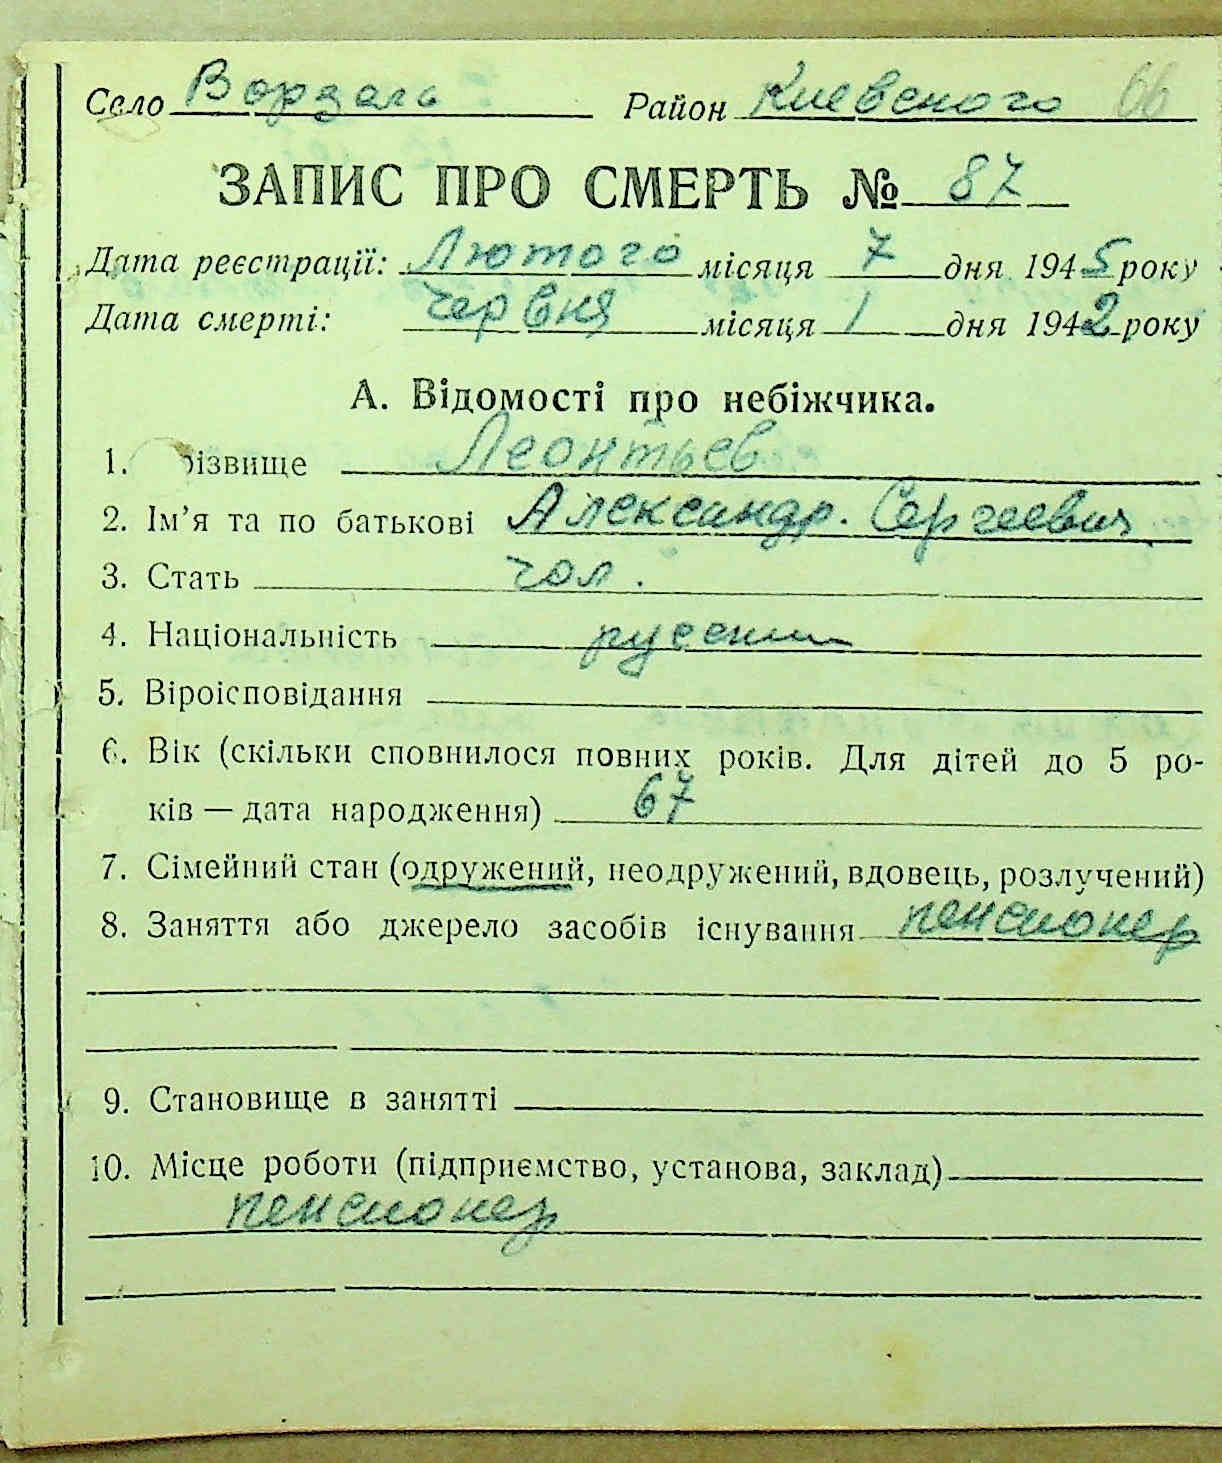 Село Ворзель Район Киевского 66
ЗАПИС ПРО СМЕРТЬ № 87
Дата реєстрації: Лютого місяця 7 дня 1945 року
Дата смерті: червня місяця 1 дня 1942 року
А. Відомості про небіжчика.
1. різвище Леонтьев
2. Ім’я та по батькові Александр. Сергеевич
3. Стать чол.
4. Національність русский
5. Віроісповідання
6. Вік (скільки сповнилося повних років. Для дітей до 5 ро-
ків — дата народження) 67
7. Сімейний стан (одружений, неодружений, вдовець, розлучений)
8. Заняття або джерело засобів існування пенсионер
9. Становище в занятті
10. Місце роботи (підприємство, установа, заклад)
пенсионер